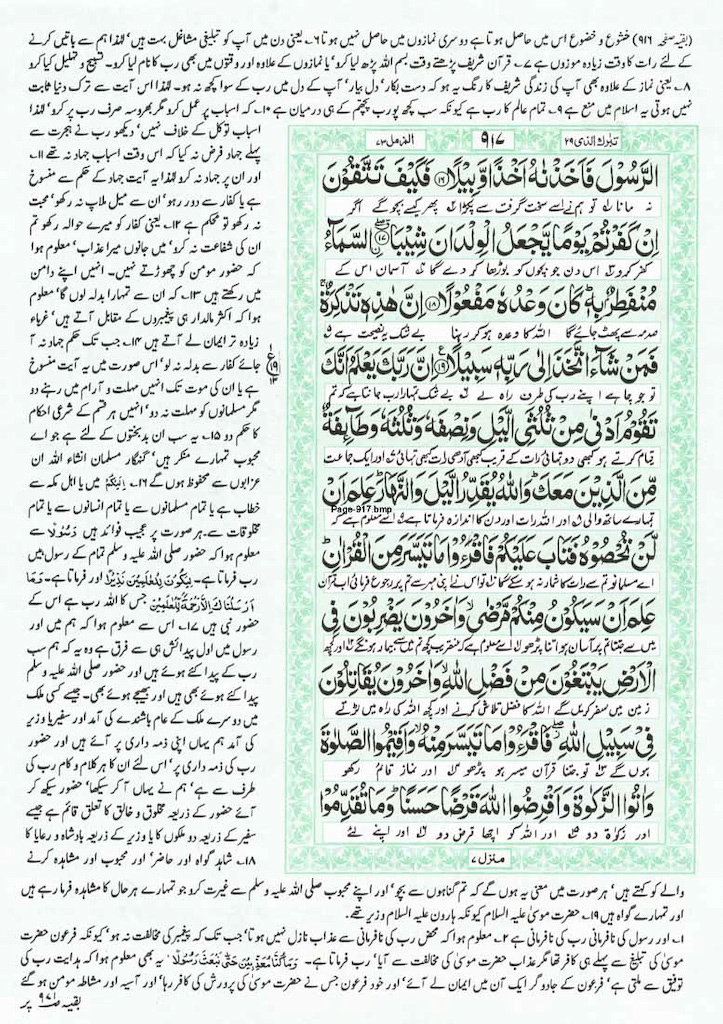 (بقیہ صفحہ ۹۱۶) خشوع و خضوع اس میں حاصل ہوتا ہے دوسری نمازوں میں حاصل نہیں ہوتا ۶۔ یعنی دن میں آپ کو تبلیغی مشاغل بہت ہیں' لہٰذا ہم سے باتیں کرنے
کے لئے رات کا وقت زیادہ موزوں ہے ۷۔ قرآن شریف پڑھتے وقت بسم اللہ پڑھ لیا کرو' یا نمازوں کے علاوہ اور وقتوں میں بھی رب کا نام لیا کرو۔ تسبیح و تہلیل کیا کرو
۸۔ یعنی نماز کے علاوہ بھی آپ کی زندگی شریف کا رنگ یہ ہو کہ دست بکار' دل بیار' آپ کے دل میں رب کے سوا کچھ نہ ہو۔ لہٰذا اس آیت سے ترک دنیا ثابت
نہیں ہوتی یہ اسلام میں منع ہے ۹۔ تمام عالم کا رب ہے کیونکہ سب کچھ پورب پچھم کے ہی درمیان ہے ۱۰۔ کہ اسباب پر عمل کرو مگر بھروسہ صرف رب پر کرو' لہٰذا
اسباب توکل کے خلاف نہیں' دیکھو رب نے ہجرت سے
پہلے جہاد فرض نہ کیا کہ اس وقت اسباب جہاد نہ تھے ۱۱۔
اور ان پر جہاد نہ کرو لہٰذا یہ آیت جہاد کے حکم سے منسوخ
ہے یا کفار سے دور رہو' ان سے میل ملاپ نہ رکھو' محبت
نہ رکھو تو محکم ہے ۱۲۔ یعنی کفار کو میرے حوالہ رکھو تم
ان کی شفاعت نہ کرو' میں جانوں میرا عذاب' معلوم ہوا
کہ حضور مومن کو چھوڑتے نہیں۔ انہیں اپنے دامن
میں رکھتے ہیں ۱۳۔ کہ ان سے تمہارا بدلہ لوں گا' معلوم
ہوا کہ اکثر مالدار ہی پیغمبروں کے مقابل آتے ہیں' غرباء
زیادہ تر ایمان لے آتے ہیں ۱۴۔ جب تک حکم جہاد نہ آ
جائے کفار سے بدلہ نہ لو' اس صورت میں یہ آیت منسوخ
ہے یا ان کی موت تک انہیں مہلت و آرام میں رہنے دو
مگر مسلمانوں کو مہلت نہ دو' انہیں ہر قسم کے شرعی احکام
کا حکم دو ۱۵۔ یہ سب ان بدبختوں کے لئے ہے جو اے
محبوب تمہارے منکر ہیں' گنہگار مسلمان انشاء اللہ ان
عذابوں سے محفوظ ہوں گے ۱۶۔ اِلَيْكُمْ میں یا اہل مکہ سے
خطاب ہے یا تمام مسلمانوں سے یا تمام انسانوں سے یا تمام
مخلوقات سے، ہر صورت پر عجیب فوائد ہیں رَسُوْلًا سے
معلوم ہوا کہ حضور صلی اللہ علیہ وسلم تمام کے رسول ہیں
رب فرماتا ہے۔ لِيَكُوْنَ لِلْعٰلَمِيْنَ نَذِيْرًا اور فرماتا ہے۔ وَمَا
اَرْسَلْنٰكَ اِلَّا رَحْمَةً لِّلْعٰلَمِيْنَ جس کا اللہ رب ہے اس کے
حضور نبی ہیں ۱۷۔ اس سے معلوم ہوا کہ ہم میں اور
رسول میں اول پیدائش ہی سے فرق ہے وہ یہ کہ ہم سب
رب کے پیدا کئے ہوئے ہیں اور حضور صلی اللہ علیہ وسلم
پیدا کئے ہوئے بھی ہیں اور بھیجے ہوئے بھی۔ جیسے کسی ملک
میں دوسرے ملک کے عام باشندے کی آمد اور سفیر یا وزیر
کی آمد ہم یہاں اپنی ذمہ داری پر آئے ہیں اور حضور
رب کی ذمہ داری پر' اس لئے ان کا ہر کلام و کام رب کی
طرف سے ہے' ہم نے یہاں آ کر سیکھا' حضور سیکھ کر
آئے حضور کے ذریعہ مخلوق و خالق کا تعلق قائم ہے جیسے
سفیر کے ذریعہ دو ملکوں کا یا وزیر کے ذریعہ بادشاہ و رعایا کا
۱۸۔ شاہد گواہ اور حاضر' اور محبوب اور مشاہدہ کرنے
تبٰرك الذی ۲۹
۹۱۷
المزمل ۷۳
الرَّسُوْلَ فَاَخَذْنٰهُ اَخْذًا وَّبِيْلًا ۝۱۶ فَكَيْفَ تَتَّقُوْنَ
نہ مانا تو ہم نے اسے سخت گرفت سے پکڑا پھر کیسے بچو گے اگر
اِنْ كَفَرْتُمْ يَوْمًا يَّجْعَلُ الْوِلْدَانَ شِيْبَا ۝۱۷ۨ السَّمَآءُ
کفر کرو اس دن جو بچوں کو بوڑھا کر دے گا آسمان اس کے
مُنْفَطِرٌۢ بِهٖ ؕ كَانَ وَعْدُهٗ مَفْعُوْلًا ۝۱۸ اِنَّ هٰذِهٖ تَذْكِرَةٌ ۚ
صدمہ سے پھٹ جائے گا اللہ کا وعدہ ہو کر رہنا بے شک یہ نصیحت ہے
فَمَنْ شَآءَ اتَّخَذَ اِلٰى رَبِّهٖ سَبِيْلًا ۝۱۹ اِنَّ رَبَّكَ يَعْلَمُ اَنَّكَ
تو جو چاہے اپنے رب کی طرف راہ لے بے شک تمہارا رب جانتا ہے کہ تم
تَقُوْمُ اَدْنٰى مِنْ ثُلُثَىِ الَّيْلِ وَنِصْفَهٗ وَثُلُثَهٗ وَطَآئِفَةٌ
قیام کرتے ہو کبھی دو تہائی رات کے قریب کبھی آدھی رات کبھی تہائی اور ایک جماعت
مِّنَ الَّذِيْنَ مَعَكَ ؕ وَاللّٰهُ يُقَدِّرُ الَّيْلَ وَالنَّهَارَ ؕ عَلِمَ اَنْ
Page-917.bmp
تمہارے ساتھ والی اور اللہ رات اور دن کا اندازہ فرماتا ہے اسے معلوم ہے کہ
لَّنْ تُحْصُوْهُ فَتَابَ عَلَيْكُمْ فَاقْرَءُوْا مَا تَيَسَّرَ مِنَ الْقُرْاٰنِ ؕ
اے مسلمانو تم سے رات کا شمار نہ ہو سکے گا تو اس نے اپنی مہر سے تم پر رجوع فرمائی اب قرآن
عَلِمَ اَنْ سَيَكُوْنُ مِنْكُمْ مَّرْضٰى ۙ وَاٰخَرُوْنَ يَضْرِبُوْنَ فِى
میں سے جتنا تم پر آسان ہو اتنا پڑھو اسے معلوم ہے کہ عنقریب کچھ تم میں سے بیمار ہوں گے اور کچھ
الْاَرْضِ يَبْتَغُوْنَ مِنْ فَضْلِ اللّٰهِ ۙ وَاٰخَرُوْنَ يُقَاتِلُوْنَ
زمین میں سفر کریں گے اللہ کا فضل تلاش کرنے اور کچھ اللہ کی راہ میں لڑتے
فِىْ سَبِيْلِ اللّٰهِ ۖ فَاقْرَءُوْا مَا تَيَسَّرَ مِنْهُ ۙ وَاَقِيْمُوا الصَّلٰوةَ
ہوں گے تو جتنا قرآن میسر ہو پڑھو اور نماز قائم رکھو
وَاٰتُوا الزَّكٰوةَ وَاَقْرِضُوا اللّٰهَ قَرْضًا حَسَنًا ؕ وَمَا تُقَدِّمُوْا
اور زکوٰۃ دو اور اللہ کو اچھا قرض دو اور اپنے لئے
منزل ۷
والے کو کہتے ہیں' ہر صورت میں معنی یہ ہوں گے کہ تم گناہوں سے بچو' اور اپنے محبوب صلی اللہ علیہ وسلم سے غیرت کرو جو تمہارے ہر حال کا مشاہدہ فرما رہے ہیں
اور تمہارے گواہ ہیں ۱۹۔ حضرت موسیٰ علیہ السلام کیونکہ ہارون علیہ السلام وزیر تھے۔
۱۔ اور رسول کی نافرمانی رب کی نافرمانی ہے ۲۔ معلوم ہوا کہ محض رب کی نافرمانی سے عذاب نازل نہیں ہوتا' جب تک کہ پیغمبر کی مخالفت نہ ہو' کیونکہ فرعون حضرت
موسیٰ کی تبلیغ سے پہلے ہی کافر تھا مگر عذاب حضرت موسیٰ کی مخالفت سے آیا' رب فرماتا ہے۔ وَمَا كُنَّا مُعَذِّبِيْنَ حَتّٰى نَبْعَثَ رَسُوْلًا ' یہ بھی معلوم ہوا کہ ہدایت رب کی
توفیق سے ملتی ہے' فرعون کے جادوگر ایک آن میں ایمان لے آئے' اور خود فرعون جس نے حضرت موسیٰ کی پرورش کی کافر رہا' اور آسیہ اور مشاطہ مومن ہو گئے
بقیہ ص ۹۷۱ پر